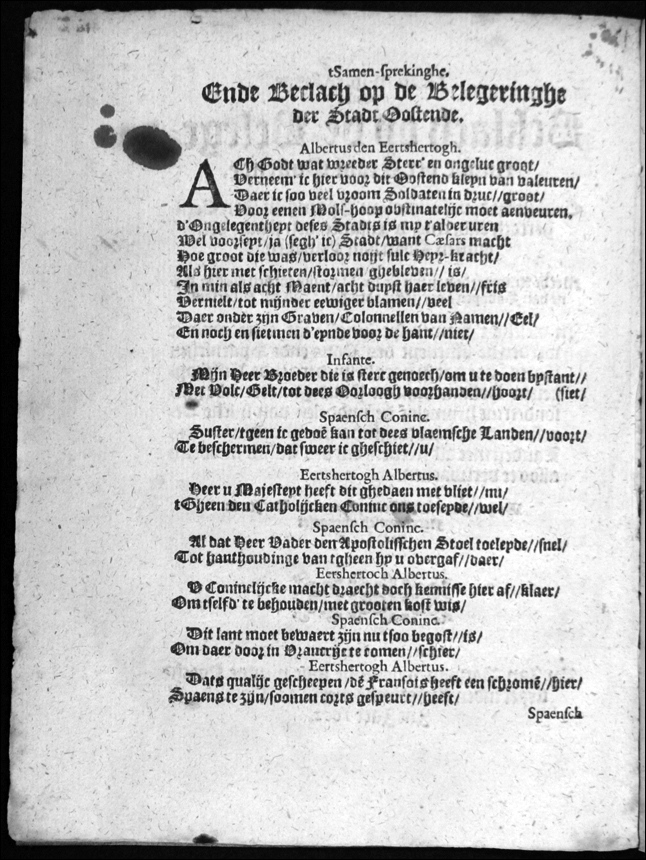 tSamen-sprekinghe,
Ende Beclach op de Belegeringhe
der Stadt Oostende.
Albertus den Eertshertogh.
ACh Godt wat wreeder Sterf' en ongeluc groot/
Verneem' ic hier voor dit Oostend kleyn van valeuren/
Daer ic soo veel vroom Soldaten in druc//groot/
Voor eenen Molf-hoop obstinatelijc moet aenveuren.
d'Ongelegentheyt deses Stadts is my t'aloer uren
Wel voorseyt/ja (segh' ic) Stadt/want Cæsars macht
Hoe groot die was/verloor noijt sulc Heyr-kracht/
Als hier met schieten/stormen/ghebleven// is/
In min als acht Maent/acht duyst haer leven//fris
Vernielt/tot mijnder eewiger blamen//veel
Daer onder zijn Graven/Colonnellen van Namen//Eel/
En noch en sietmen d'eynde voor de hant//niet/
Infante.
Mijn Heer Broeder die is sterc genoech/om u te doen bystant//
Met Volc/Gelt/tot dees Oorloogh voorhanden//hoort/ (siet/
Spaensch Coninc.
Suster/tgeen ic gedoē kan tot dees vlaemsche Landen//voort/
Te beschermen/dat sweer ic gheschiet//u/
Eertshertogh Albertus.
Heer u Majesteyt heeft dit ghedaen met vliet//nu/
tGheen den Catholijcken Coninc ons toeseyde//wel/
Spaensch Coninc.
Al dat Heer Vader den Apostolisschen Stoel toeleyde//snel/
Tot hanthoudinge van tgheen hy u overgaf//daer/
Eershertoch Albertus.
V Coninclijcke macht draecht doch kennisse hier af//klaer/
Om tselfd' te behouden/met grooten kost wis/
Spaensch Coninc.
Dit lant moet bewaert zijn nu tsoo begost//is/
Om daer door in Vrancrijc te comen//schier/
Eertshertogh Albertus.
Dats qualijc gescheepen/dē Fransois heeft een schromē//hier/
Spaens te zijn/soomen corts gespeurt//heeft/
Spaensch